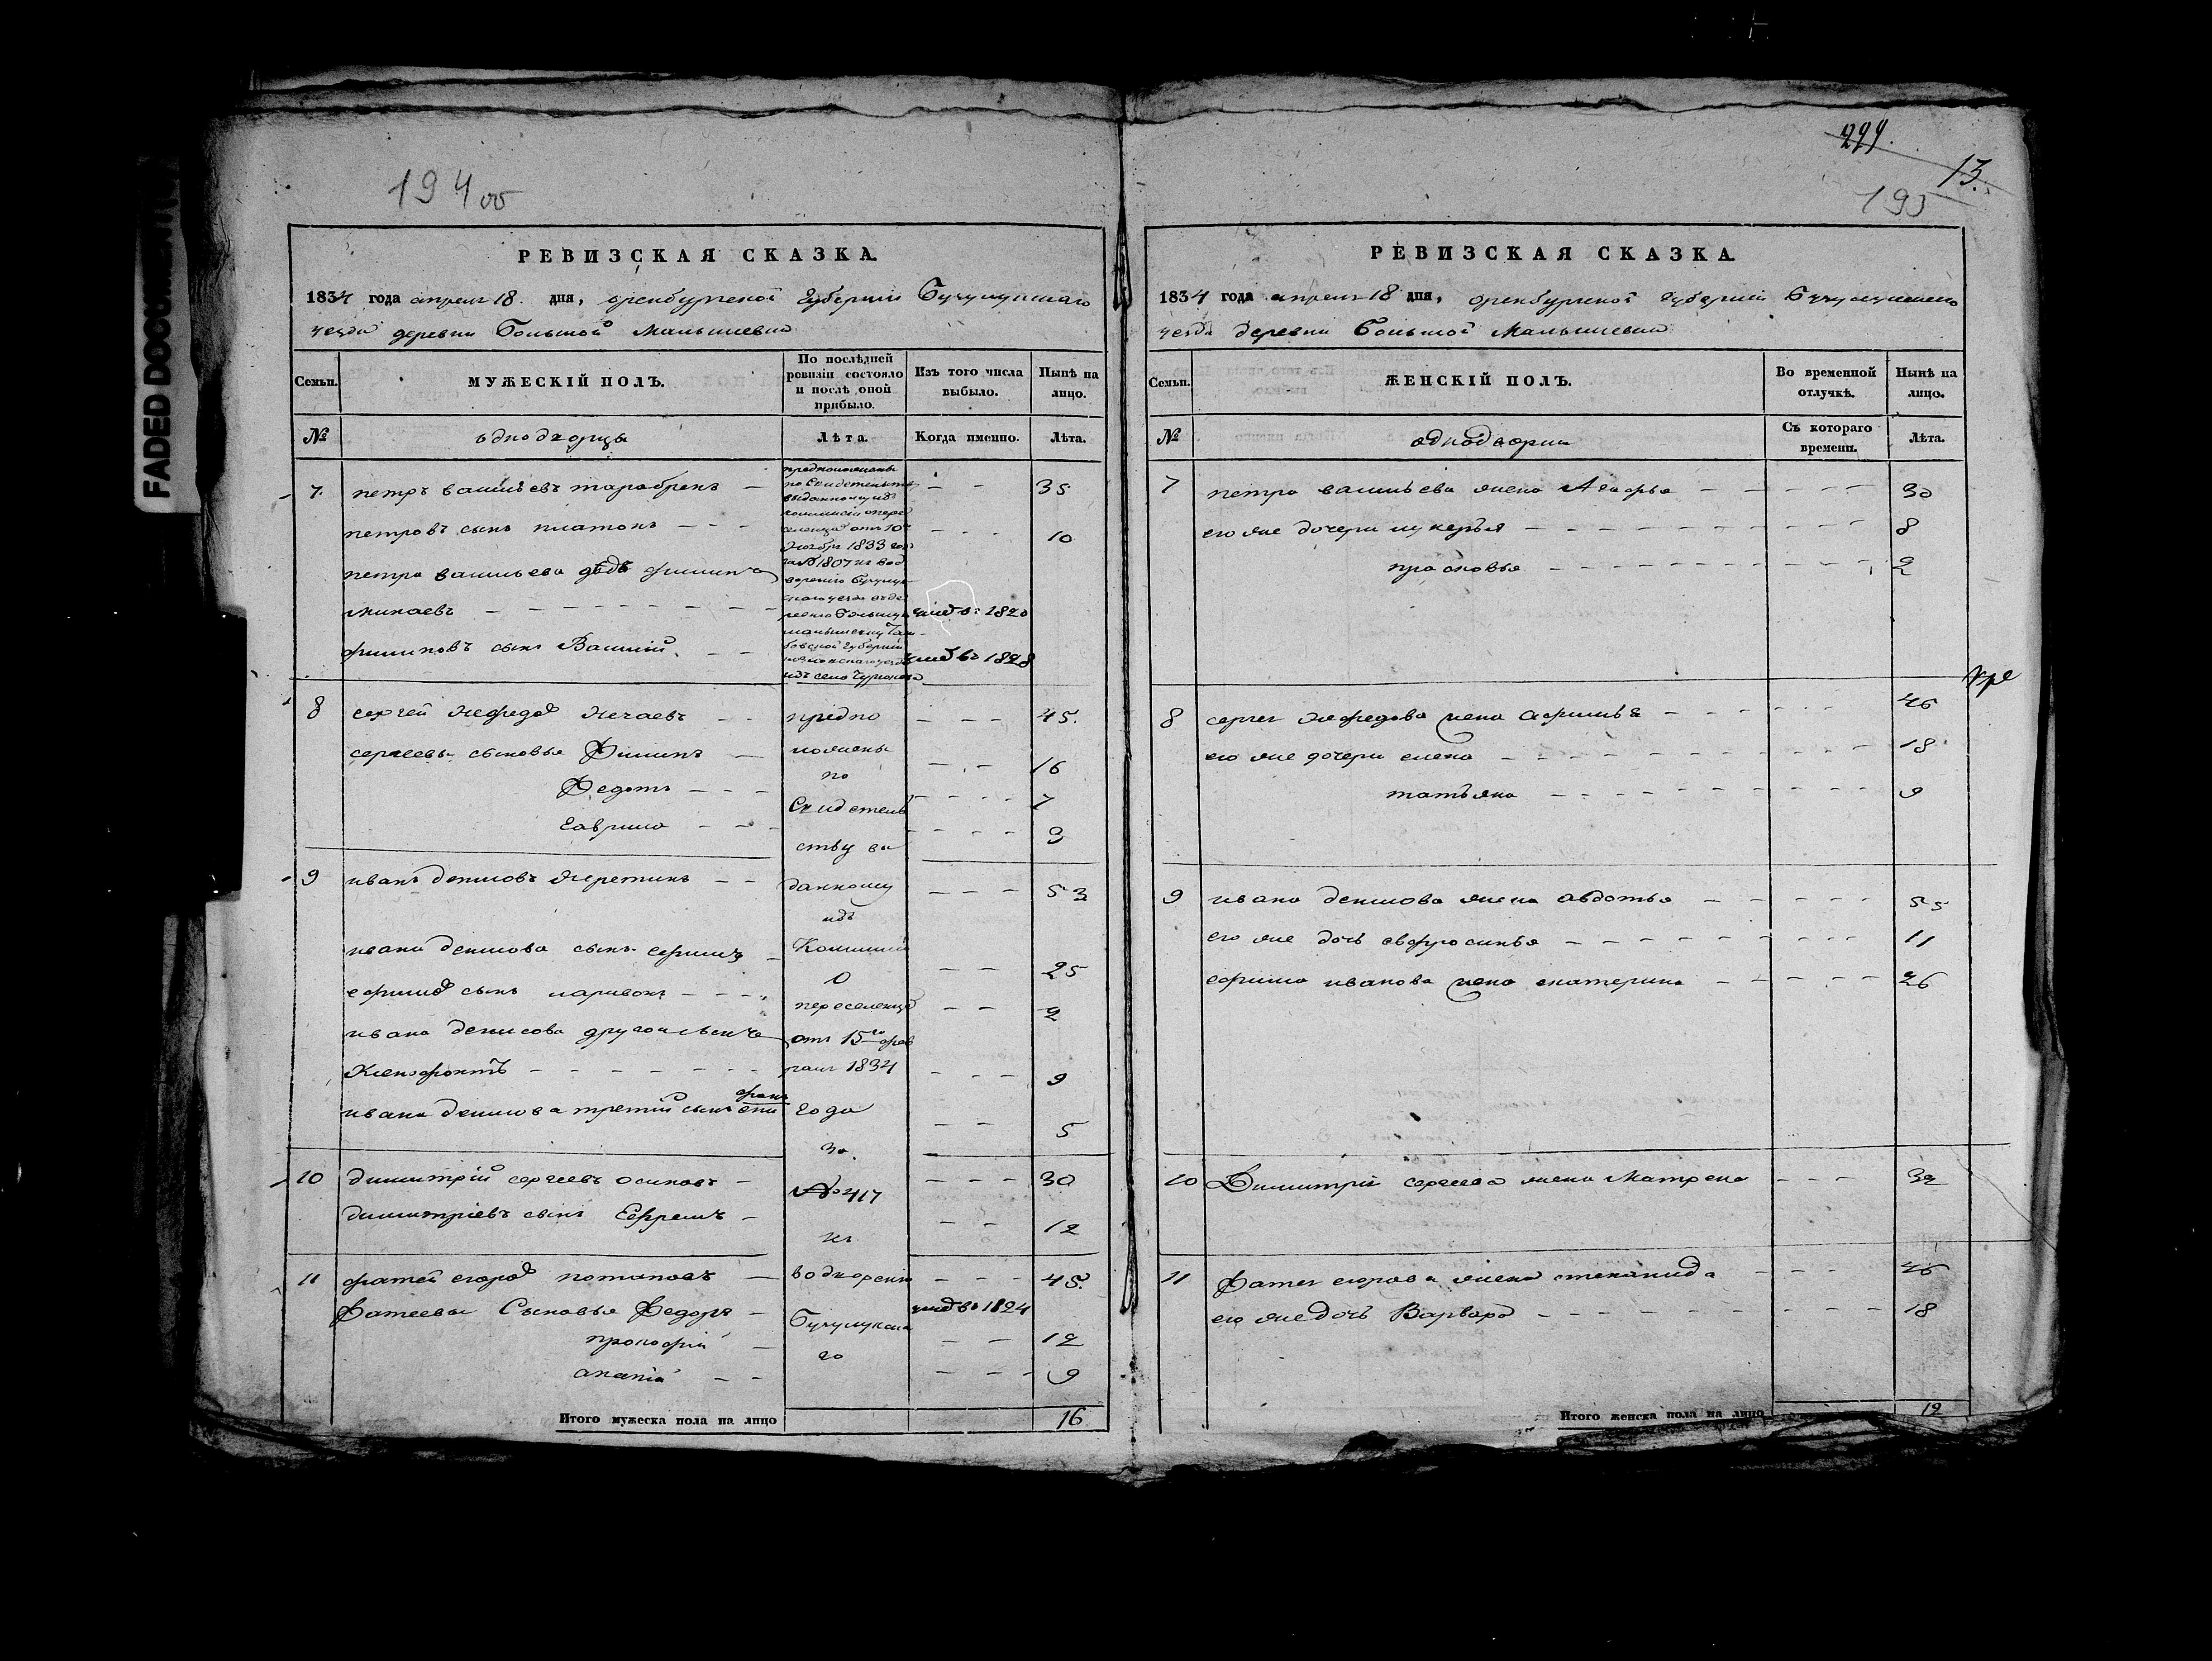 FADED DOCUMENT
194 об
РЕВИЗСКАЯ СКАЗКА.
1834 года апреля 18. дня, оренбургской губернии Бугульминского
уезда деревни Большой Малышевки
Семьи.
МУЖЕСКІЙ ПОЛЪ.
По послѣдней ревизіи состояло и послѣ оной прибыло.
Изъ того числа выбыло.
Нынѣ на лицо.
№
однодворцы
Лѣта.
Когда именно.
Лѣта.
7. петръ васильевъ тарабринъ — — — 35
петровъ сынъ платонъ — — — 10
петра васильева дѣдъ филипъ
минаевъ — — — умеръ въ 1820
филиповъ сынъ Василий — — умеръ въ 1828
предположены
по свидетельству
выданному изъ
комисіи о пересе
ленцахъ отъ 10
ноября 1833 го
за № 1807 къ вод
ворению
уезда въ де
ревню большую
малышевку Там
бовской губернии
уезда
изъ села
8 сергей нефедовъ нечаевъ — — — 45.
сергеевы сыновья Филипъ — — — 16
Федотъ — — — 7
гаврила — — — 3
9 иванъ денисовъ неретинъ — — — 53
ивана денисова сынъ ефимъ — — 25
ефимовъ сынъ ларивонъ — — — 2
ивана денисова другой сынъ
Ксенофонтъ — — — 9
ивана денисова третий сынъ епифанъ — — 5
10 димитрій сергеевъ осиповъ — — — 30
димитріевъ сынъ Ефремъ — — — 12
11 фатей егоровъ потаповъ — — — 45.
Фатеевы Сыновья Федоръ — умеръ въ 1824
прокофій — — — 12
ананій — — — 9
предпо
ложены
по
Свидетель
ству вы
данному
изъ
Комисіи
о
переселенцахъ
отъ 15го фев
раля 1834
года
за
№ 417
къ
водворению
го
Итого мужеска пола на лицо 16
299.
13.
195
РЕВИЗСКАЯ СКАЗКА.
1834 года апреля 18 дня, оренбургской губернии Бугульминского
уезда деревни Большой Малышевки
Семьи.
ЖЕНСКІЙ ПОЛЪ.
Во временной отлучкѣ.
Нынѣ на лицо.
№
однодворки
Съ котораго времени.
Лѣта.
7 петра васильева жена Агафья — — — 30
его же дочери лукерья — — — 8
прасковья — — — 2
8 сергея нефедова жена афимья — — — 46
его же дочери елена — — — 18
татьяна — — — 9
9 ивана денисова жена авдотья — — — 55
его же дочь евфросинья — — — 11
ефима иванова жена екатерина — — — 26
10 Димитрія сергеева жена Матрена — — — 32
11 Фатея егорова жена степанида — — — 46
его же дочь Варвара — — — 18
Итого женска пола на лицо 12